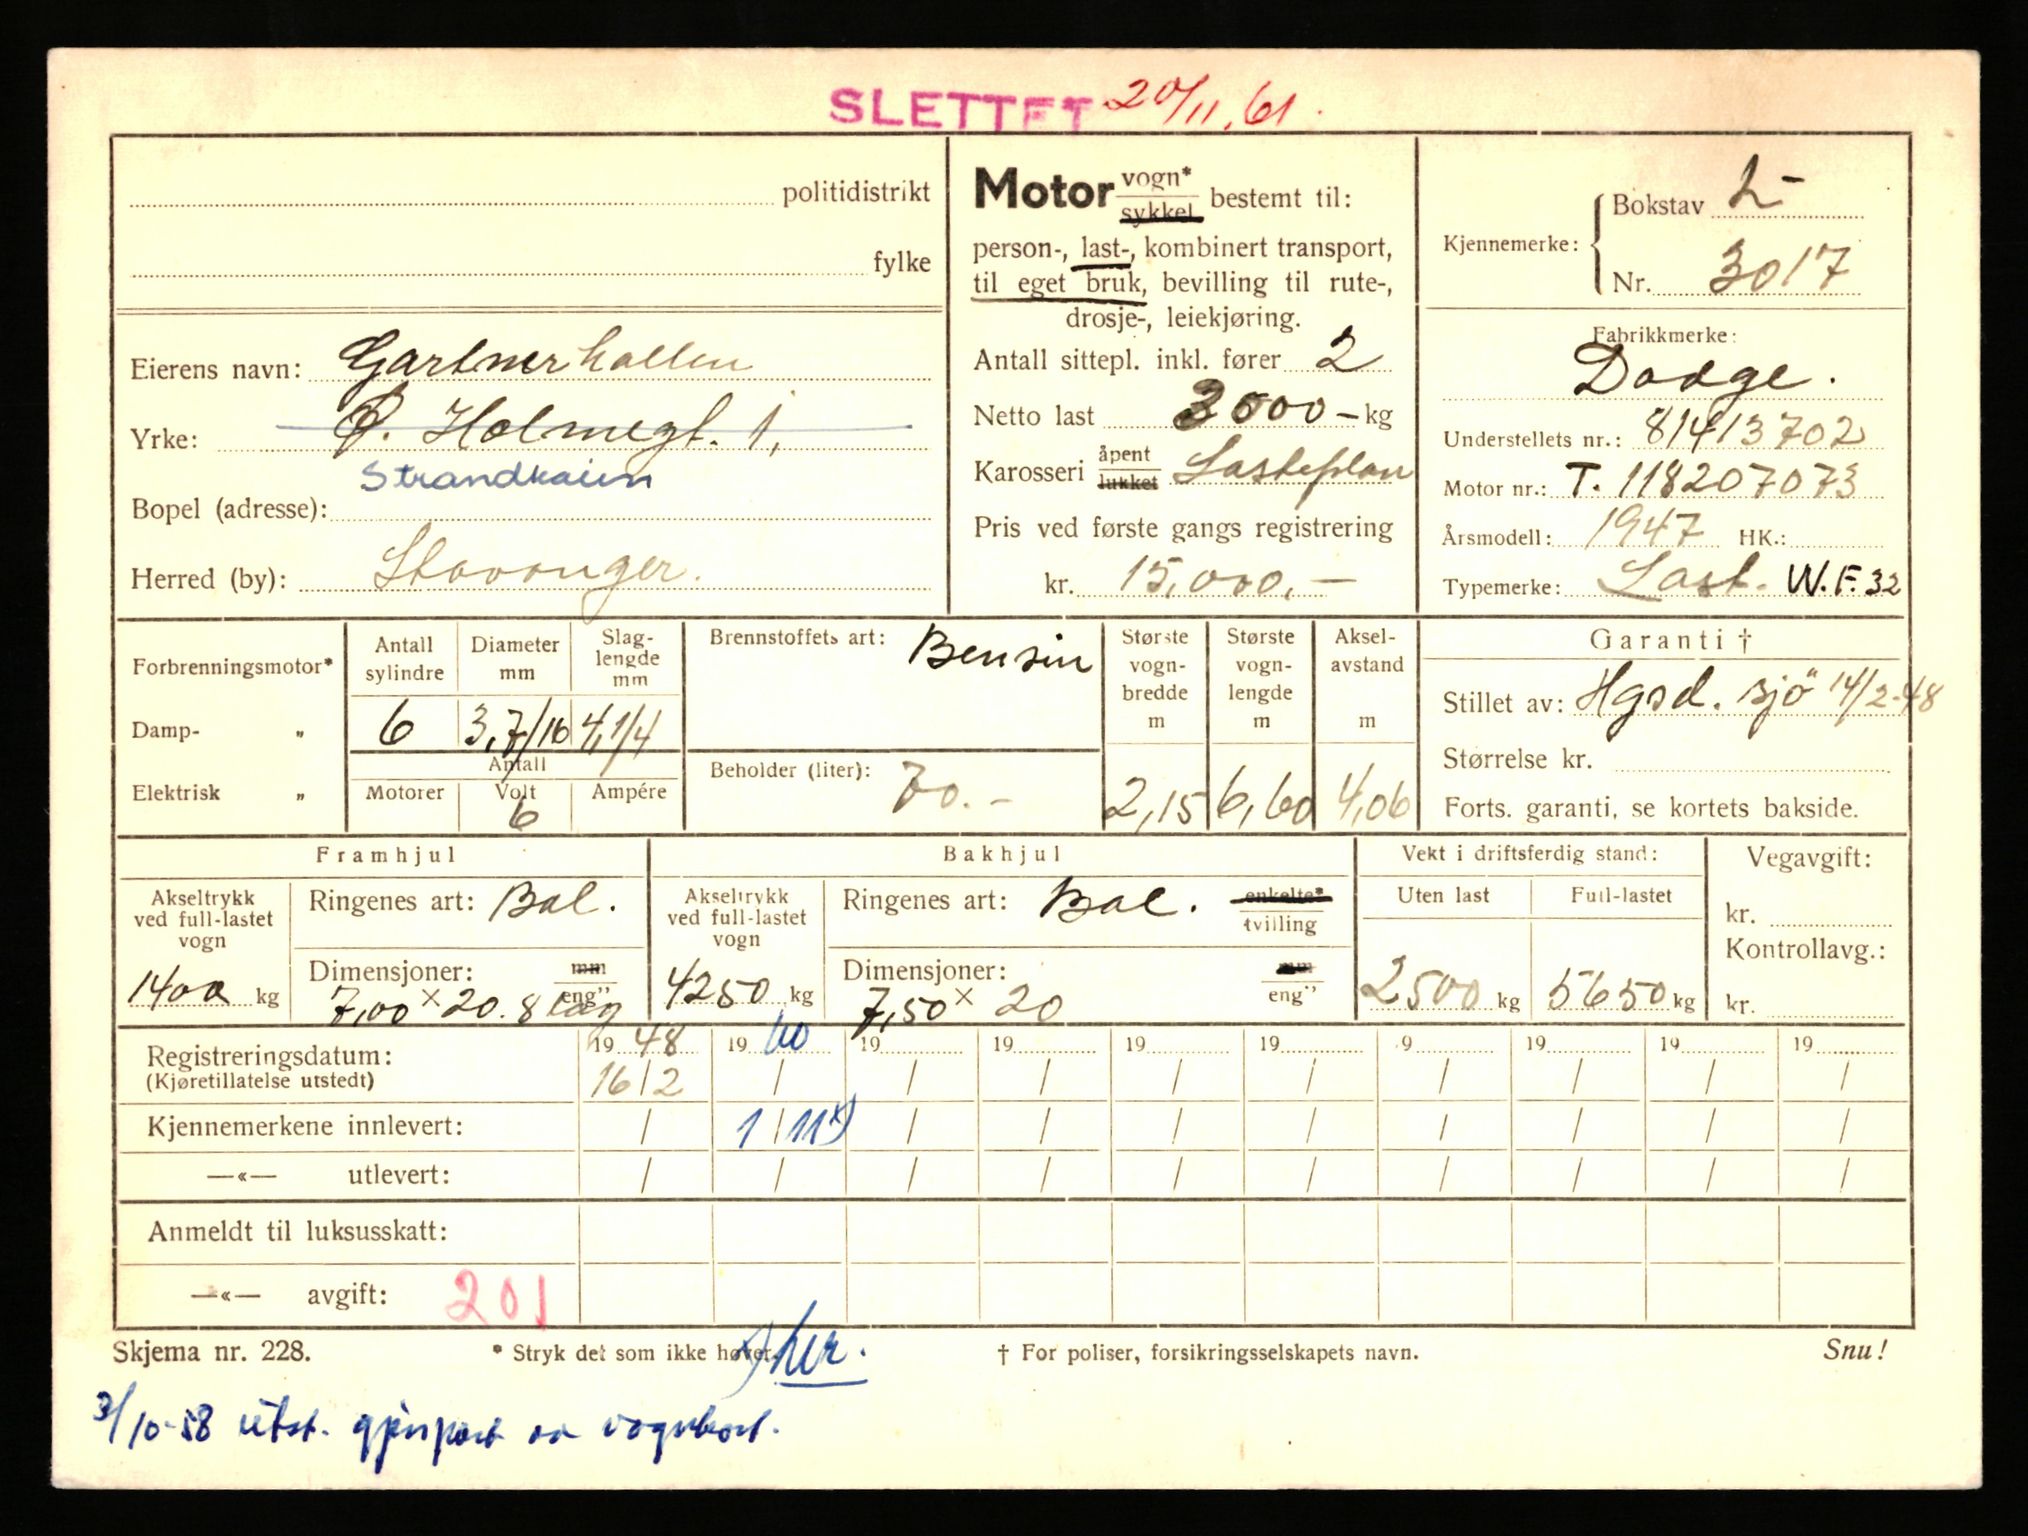 SLETTET 20/11.61.
politidistrikt
fylke
Eierens navn: Gartnerhallen
Yrke: Ø. Holmegt. 1,
Strandkaien
Bopel (adresse):
Herred (by): Stavanger.
Motor vogn* sykkel bestemt til:
person-, last-, kombinert transport,
til eget bruk, bevilling til rute-,
drosje-, leiekjøring.
Antall sittepl. inkl. fører 2
Netto last 3000 – kg
Karosseri åpent lukket Lasteplan
Pris ved første gangs registrering
kr. 15,000,–
Kjennemerke: Bokstav L-
Nr. 3017
Fabrikkmerke:
Dodge.
Understellets nr.: 81413702
Motor nr.: T. 118207073
Årsmodell: 1947 HK.:
Typemerke: Last. W.F.32
Forbrenningsmotor*
Damp- „
Elektrisk „
Antall sylindre
Diameter mm
Slag-lengde mm
6 3,7/16 4,1/4
Antall
Motorer Volt Ampére
6
Brennstoffets art: Bensin
Beholder (liter): 70.-
Største vogn-bredde m
Største vogn-lengde m
Aksel-avstand m
2,15 6,60 4,06
Garanti †
Stillet av: Hgsd. sjö 14/2-48
Størrelse kr.
Forts. garanti, se kortets bakside.
Framhjul
Akseltrykk ved full-lastet vogn
1400 kg
Ringenes art: Bal.
Dimensjoner: mm eng"
7,00 x 20. 8 lag
Bakhjul
Akseltrykk ved full-lastet vogn
4250 kg
Ringenes art: Bal. enkelte* tvilling
Dimensjoner: mm eng"
7,50 x 20
Vekt i driftsferdig stand:
Uten last Full-lastet
2500 kg 5650 kg
Vegavgift:
kr.
Kontrollavg.:
kr.
Registreringsdatum: 19 48 19 60 19 19 19 19 19 19 19 19
(Kjøretillatelse utstedt) 16/2 / / / / / / / / /
Kjennemerkene innlevert: / 1/11 x) / / / / / / / /
—«— utlevert: / / / / / / / / / /
Anmeldt til luksusskatt:
—«— avgift: 201
Skjema nr. 228. * Stryk det som ikke høver. x) her. † For poliser, forsikringsselskapets navn. Snu!
3/10-58 utst. gjenpart av vognkort.